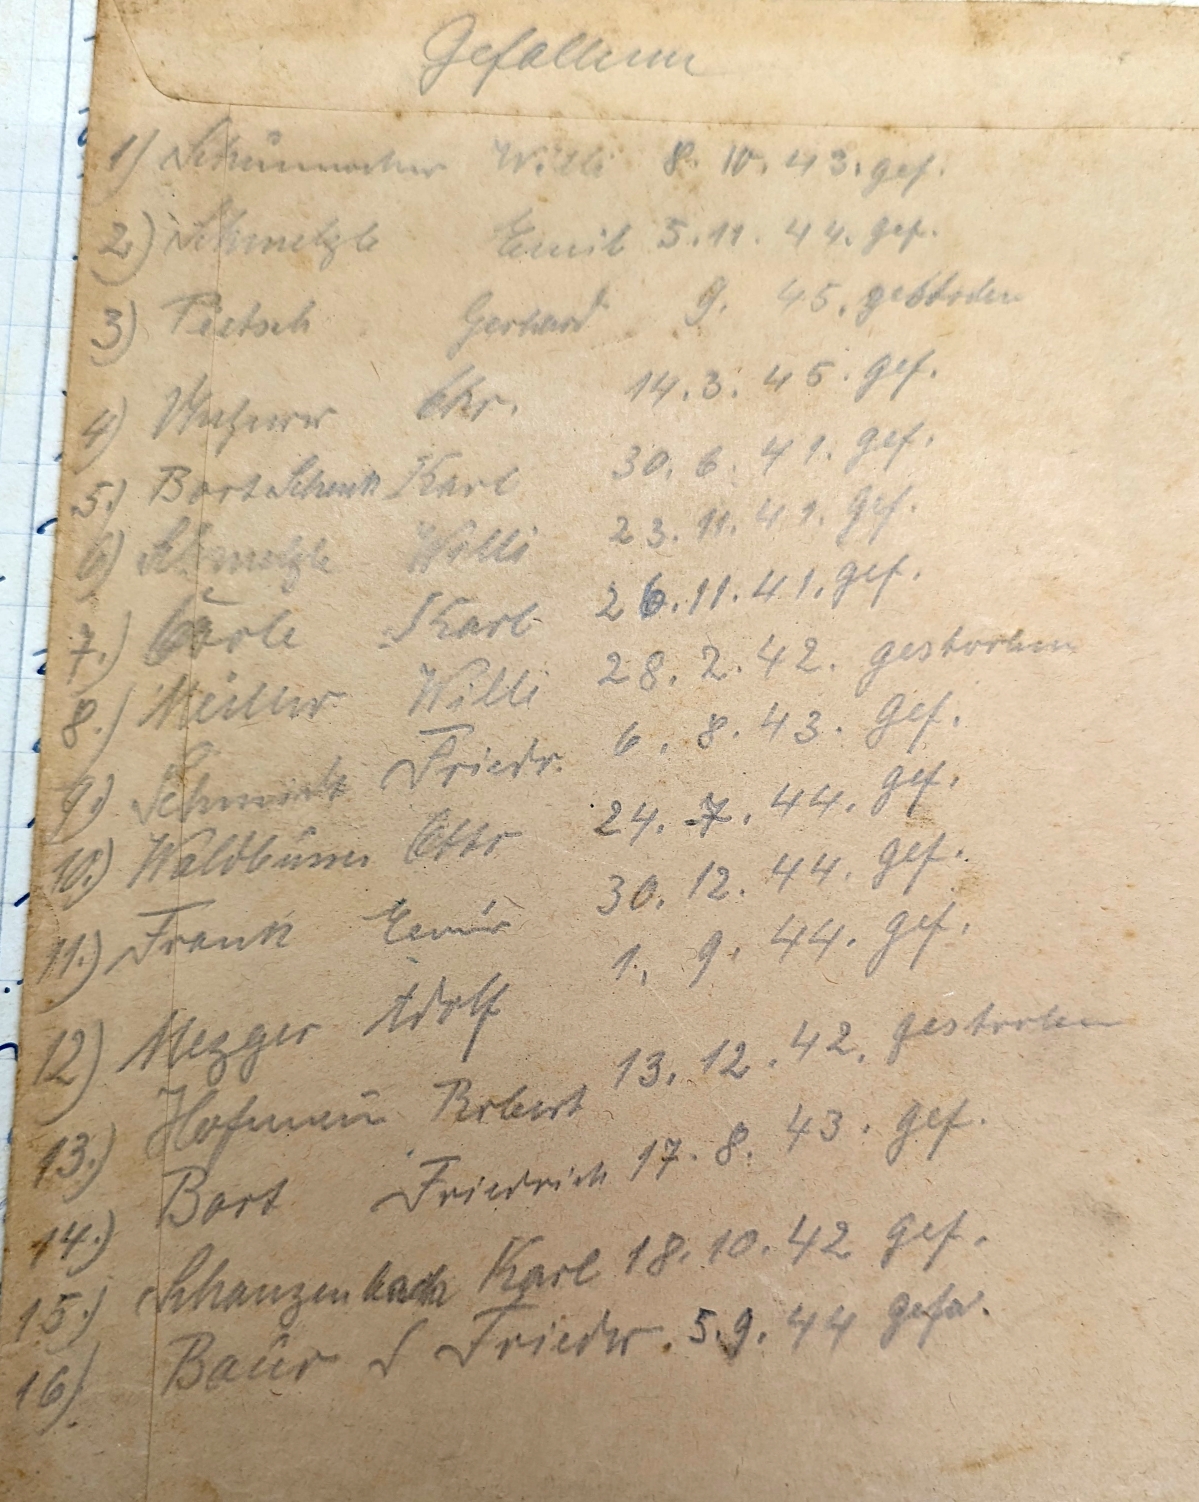 Gefallenen
1) Schumacher Willi 8. 10. 43. gef.
2) Schmelzle Emil 5. 11. 44. gef.
3) Pietsch Gerhard 9. 45. gestorben
4) Chr. 14. 3. 45. gef.
5.) Bortschenk Karl 30. 6. 41. gef.
6) Schmelzle Willi 23. 11. 41. gef.
7.) Karl 26. 11. 41. gef.
8.) Willi 28. 2. 42. gestorben
9.) Friedr. 6. 8. 43. gef.
10.) Otto 24. 7. 44. gef.
11.) Frank 30. 12. 44. gef.
12) Mezger Adolf 1. 9. 44. gef.
13.) Hofmann Robert 13. 12. 42. gestorben
14.) Bort Friedrich 17. 8. 43. gef.
15.) Schanzenbach Karl 18. 10. 42 gef.
16) Baŭr Friedr. 5. 9. 44 gefa.